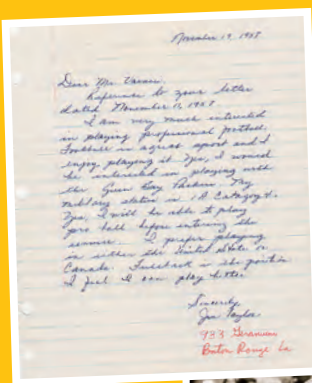 November 19, 1957
Dear Mr. Vainisi,
Reference to your letter
dated November 13, 1957
I am very much interested
in playing professional football.
Football is a great sport and I
enjoy playing it. Yes, I would
be interested in playing with
the Green Bay Packers. My
military status is 1A Category.
Yes, I will be able to play
pro ball before entering the
service. I prefer playing
in either the United States or
Canada. Fullback is the position
I feel I can play better.
Sincerely
Jim Taylor
933 Geranium
Baton Rouge La